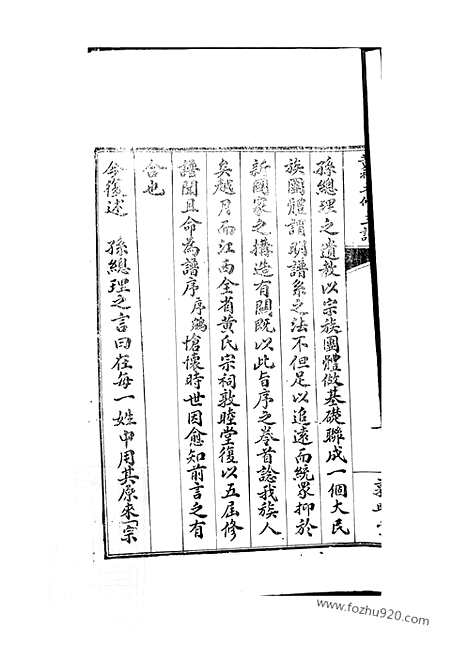 孫總理之遺教以宗族團體做基礎聯成一個大民
族團體謂明譜系之法不但足以追遠而統衆抑於
新國家之構造有關既以此旨序之卷首諗我族人
矣越月而江西全省黃氏宗祠敦睦堂復以五屆修
譜聞且命為譜序序鴻愴懷時世因愈知前言之有
合也
今復述　孫總理之言曰在每一姓中用其原來宗
www.fozhu920.com